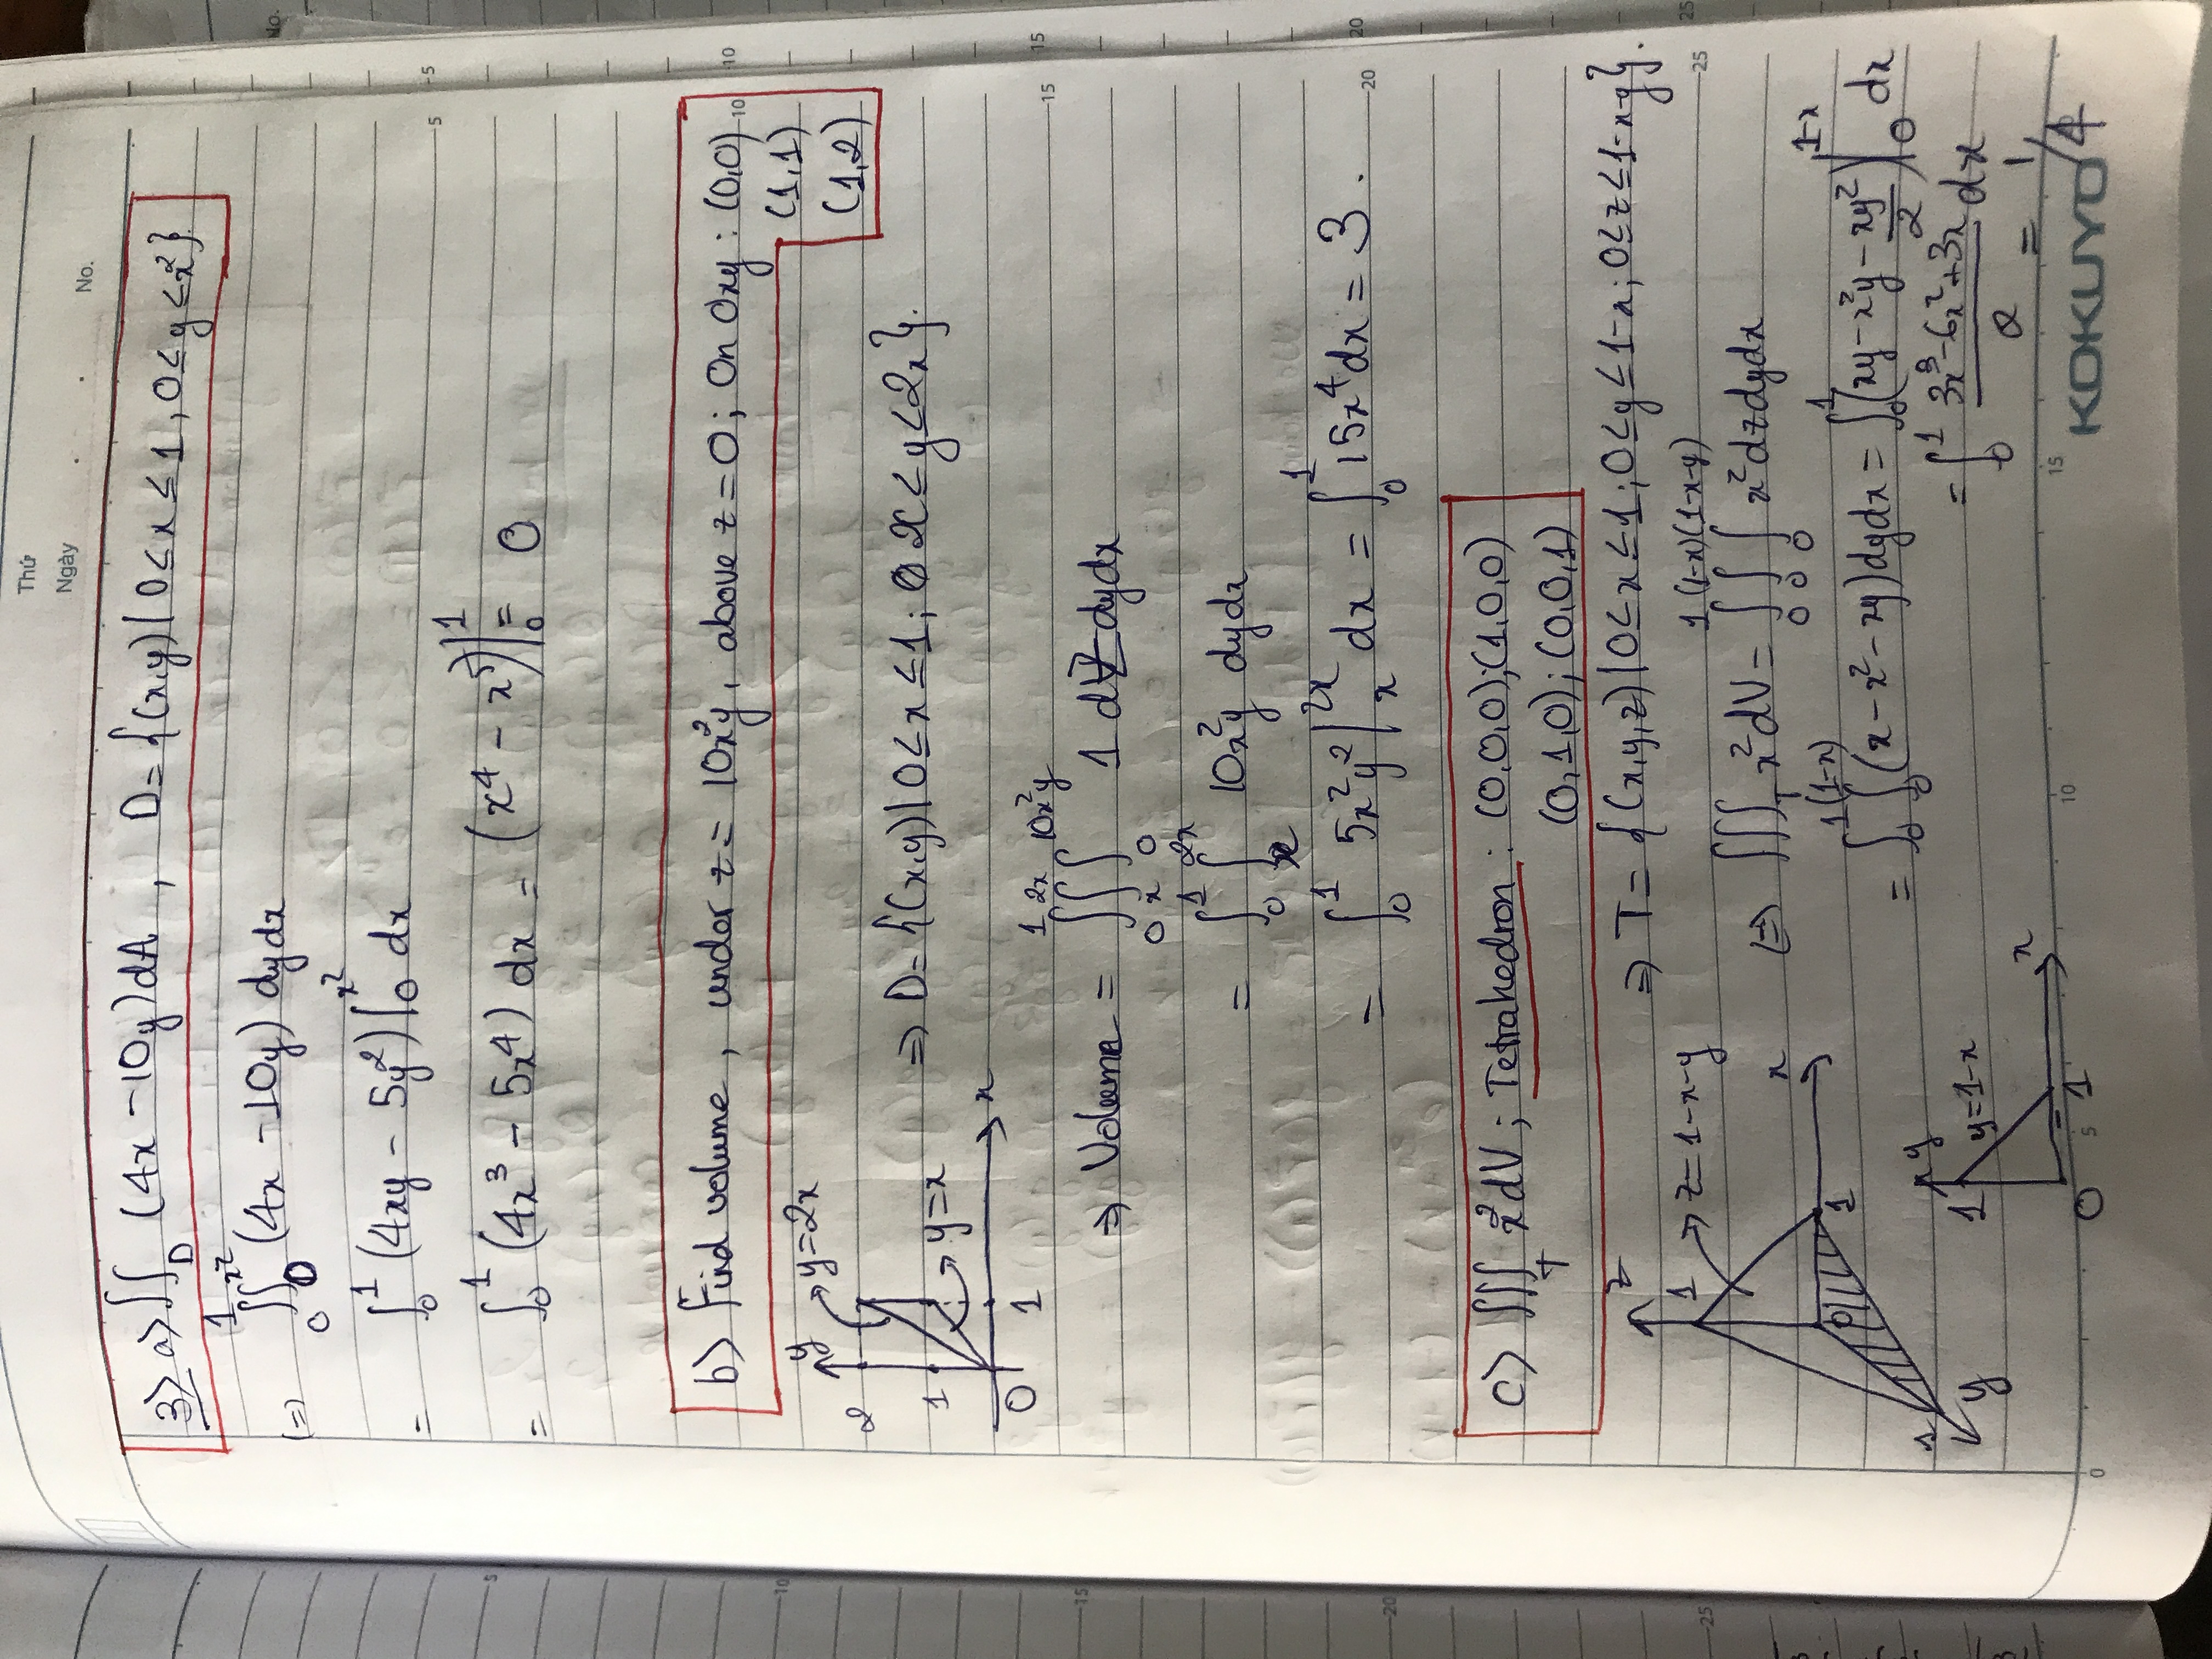 Thứ
Ngày
No.
3> a> ∬_D (4x - 10y)dA , D = {(x,y) | 0 ≤ x ≤ 1, 0 ≤ y ≤ x²}
(=) ∫_0^1 ∫_0^{x²} (4x - 10y) dydx
= ∫_0^1 (4xy - 5y²)|_0^{x²} dx
= ∫_0^1 (4x³ - 5x⁴) dx = (x⁴ - x⁵)|_0^1 = 0
b) Find volume, under z = 10x²y, above z = 0; On Oxy : (0,0)
(1,1)
(1,2)
y
y=2x
2
⇒ D = {(x,y) | 0 ≤ x ≤ 1; x ≤ y ≤ 2x}.
1
y=x
x
0 1
⇒ Volume = ∫_0^1 ∫_x^{2x} ∫_0^{10x²y} 1 dz dydx
= ∫_0^1 ∫_x^{2x} 10x²y dydx
= ∫_0^1 5x²y²|_x^{2x} dx = ∫_0^1 15x⁴dx = 3.
c) ∭_T x²dV; Tetrahedron : (0,0,0); (1,0,0)
(0,1,0); (0,0,1)
z
⇒ T = {(x,y,z) | 0 ≤ x ≤ 1; 0 ≤ y ≤ 1-x; 0 ≤ z ≤ 1-x-y}.
1
z=1-x-y
(=) ∭_T x²dV = ∫_0^1 ∫_0^{(1-x)} ∫_0^{(1-x-y)} x²dzdydx
x
0
1
= ∫_0^1 ∫_0^{(1-x)} (x - x² - xy)dydx = ∫_0^1 (xy - x²y - xy²/2)|_0^{1-x} dx
1
y
= ∫_0^1 (3x³ - 6x² + 3x)/2 dx
= 1/4
y
1
y=1-x
x
0 1
5
10
15
20
25
0 5 10 15
KOKUYO